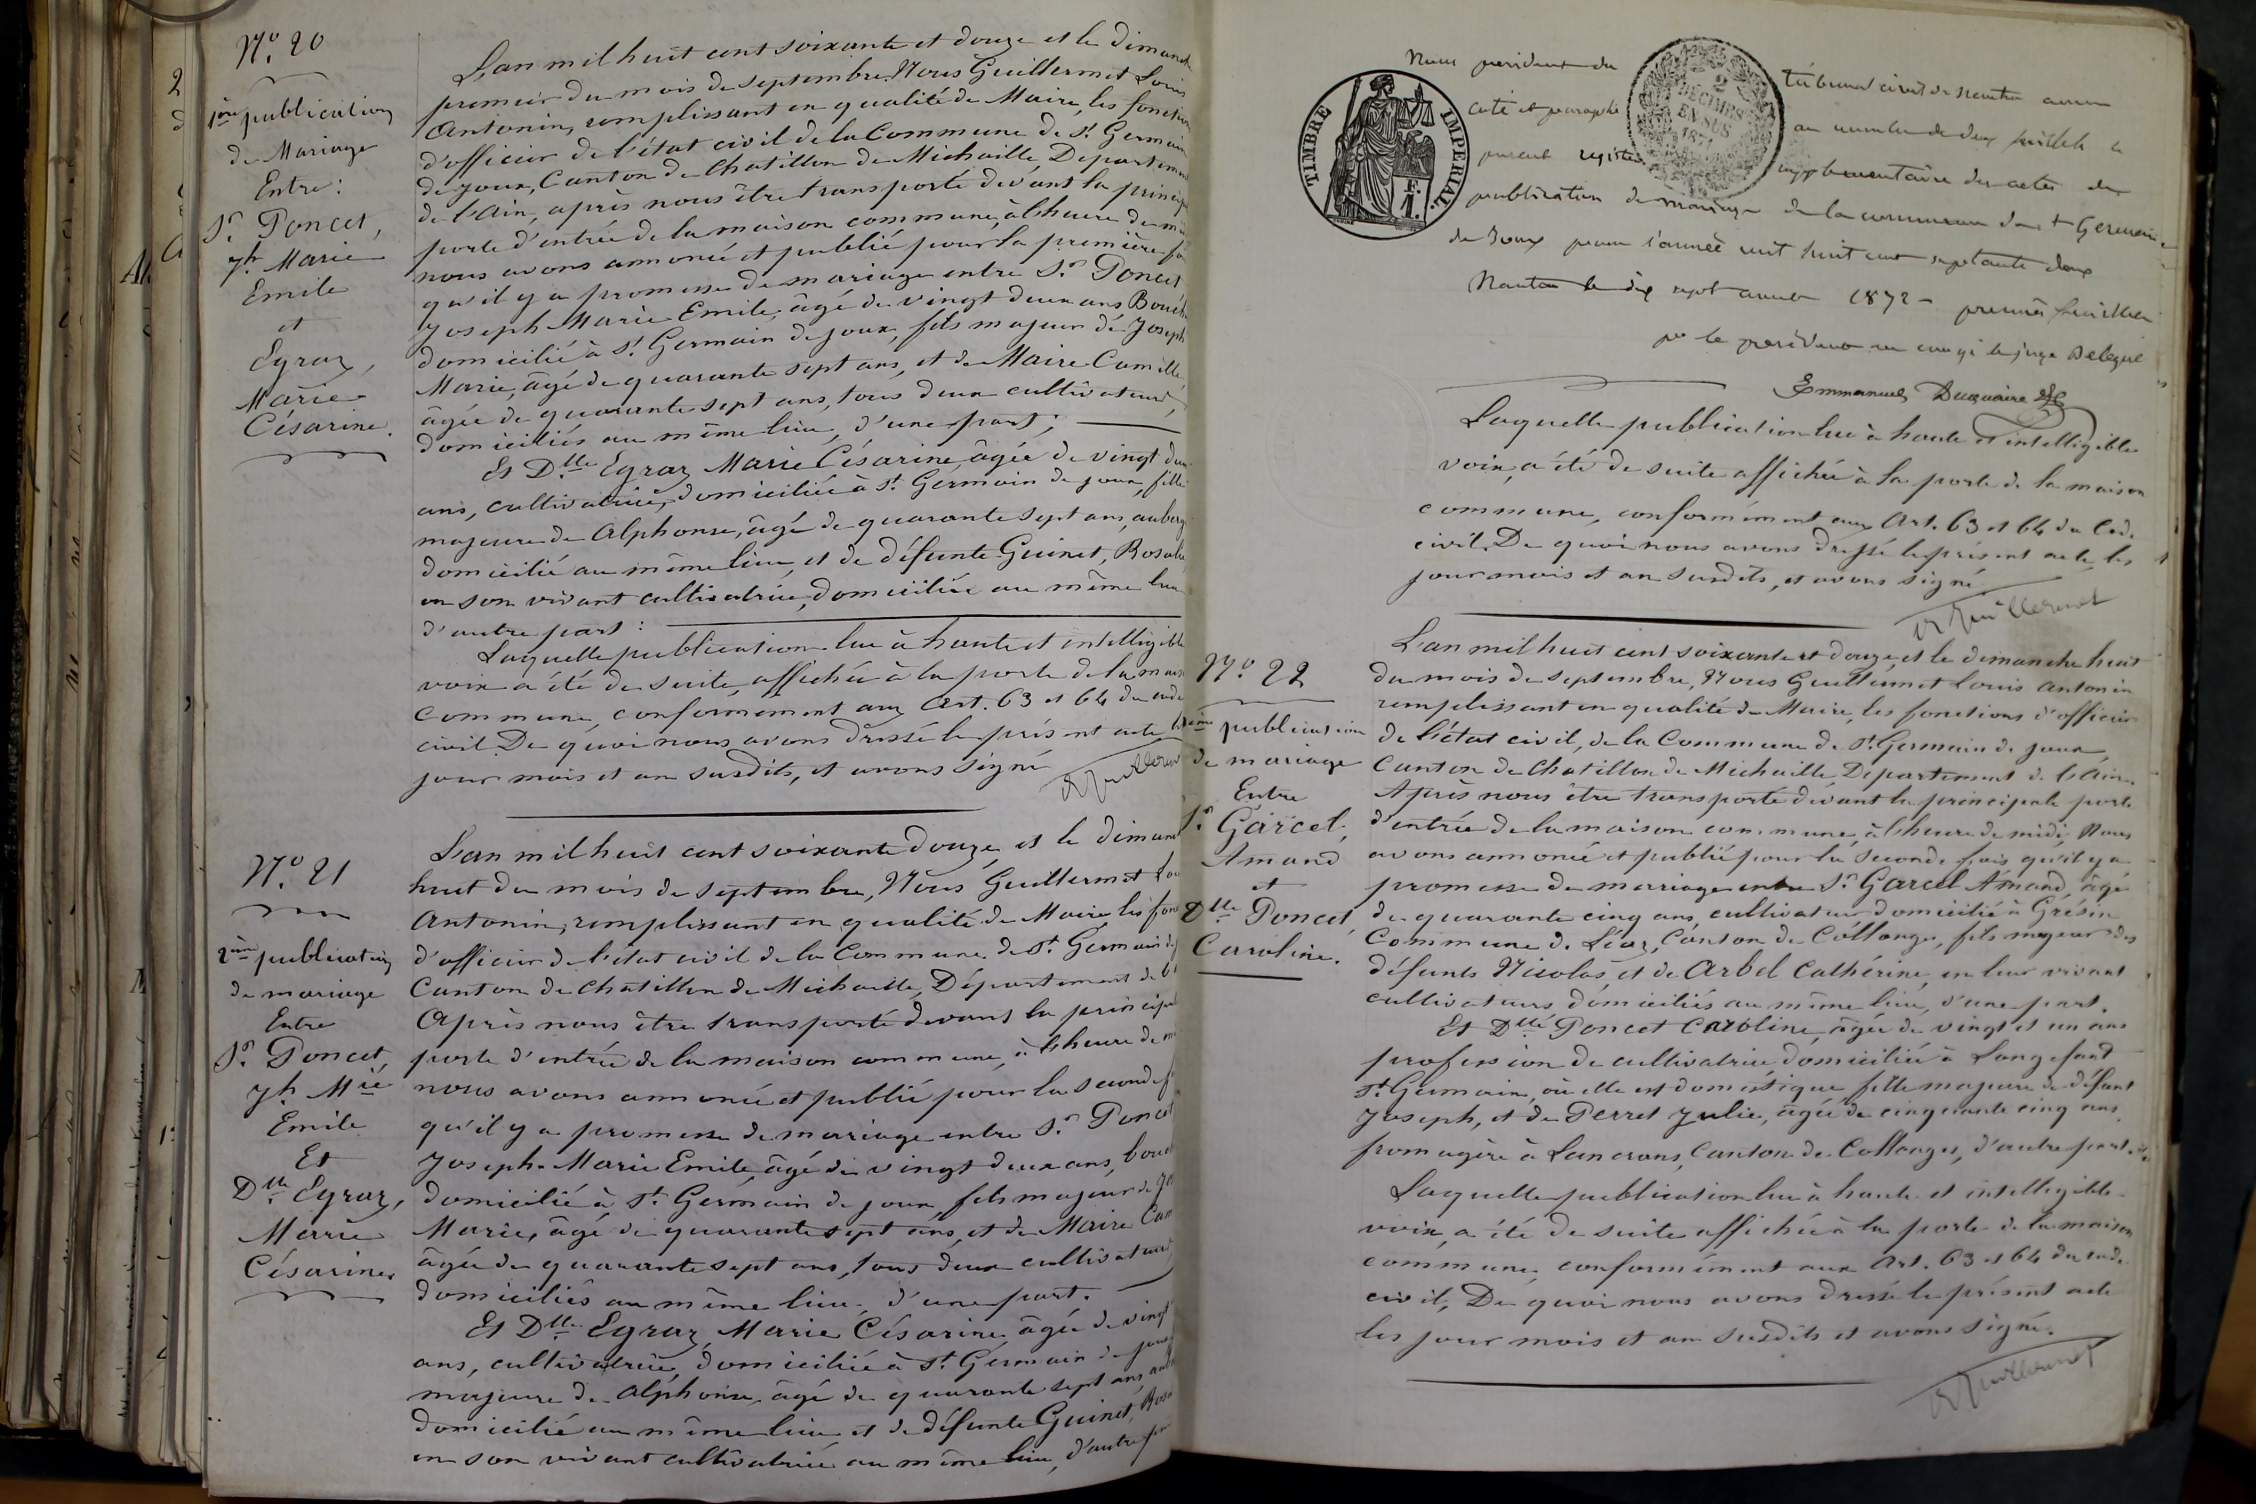 N.º 20
1ère publication
de Mariage
Entre:
Sr. Poncet,
Jh. Marie
Emile
et
Egraz,
Marie
Césarine.
L'an mil huit cent soixante et douze et le dimanche
premier du mois de septembre. Nous Guillermet Louis
Antonin, remplissant en qualité de Maire, les fonctions
d'officier de l'état civil de la Commune de St. Germain
de joux, Canton de Chatillon de Michaille, Département
de l'Ain, après nous être transporté devant la principale
porte d'entrée de la maison commune, à l'heure de midi
nous avons annoncé et publié pour la première fois
qu'il y a promesse de mariage entre Sr. Poncet
Joseph Marie Emile, âgé de vingt deux ans, Boucher
domicilié à St. Germain de joux, fils majeur de Joseph
Marie, âgé de quarante sept ans, et de Maire Camille,
âgée de quarante sept ans, tous deux cultivateurs,
domiciliés au même lieu, d'une part;
Et Dlle. Egraz Marie Césarine âgée de vingt deux
ans, cultivatrice, domiciliée à St. Germain de joux, fille
majeure de Alphonse, âgé de quarante sept ans, auberg
domicilié au même lieu, et de défunte Guinet, Rosalie
en son vivant cultivatrice, domiciliée au même lieu
d'autre part:
Laquelle publication lue à haute et intelligible
voix a été de suite, affichée à la porte de la maison
Commune, conformement aux Art. 63 et 64 du code
civil. De quoi nous avons dressé le présent acte les
jour mois et an susdits, et avons signé
A Guillermet
N.º 21
2ème publication
de mariage
Entre
Sr. Poncet,
Jh. Mie
Emile
Et
Dlle Egraz,
Marie
Césarine
L'an mil huit cent soixante douze, et le dimanche
huit du mois de septembre, Nous Guillermet Lou
Antonin, remplissant en qualité de Maire, les fonc
d'officier de l'état civil de la Commune de St. Germain de j
Canton de Chatillon de Michaille, Département de l'
Après nous être transporté devant la principale
porte d'entrée de la maison commune, à l'heure de mi
nous avons annoncé et publié pour la seconde f
qu'il y a promesse de mariage entre Sr. Poncet
Joseph-Marie Emile, âgé de vingt deux ans, bouch
domicilié à St. Germain de joux, fils majeur de Jo
Marie, âgé de quarante sept ans, et de Maire Cam
âgée de quarante sept ans, tous deux cultivateurs
domiciliés au même lieu, d'une part.
Et Dlle. Egraz, Marie Césarine âgée de vingt
ans, cultivatrice, domiciliée à St. Germain de joux
majeure de Alphonse, âgé de quarante sept ans, au
domicilié au même lieu et de défunte Guinet, Rosa
en son vivant cultivatrice au même lieu, d'autre par
Nous président du tribunal civil de Nantua avons
coté et paraphé
au nombre de deux feuillets le
présent registre supplémentaire des actes de
publication de mariage de la commune de St Germain
de Joux pour l'année mil huit cent septante deux
Nantua le dix sept 1872 - premier feuillet
pr le président en congé le juge Délégué
Emmanuel Ducquaire
TIMBRE IMPERIAL.
2 DÉCIMES EN SUS 1871
Laquelle publication lue à haute et intelligible
voix, a été de suite affichée à la porte de la maison
commune, conformément aux Art. 63 et 64 du Code
civil. De quoi nous avons dressé le présent acte, les
jour mois et an susdits, et avons signé
A Guillermet
N.º 22
2ème publication
de mariage
Entre
Sr. Garcel,
Amand
et
Dlle Poncet,
Caroline.
L'an mil huit cent soixante et douze, et le dimanche huit
du mois de septembre, Nous Guillermet Louis Antonin
remplissant en qualité de Maire, les fonctions d'officier
de l'état civil, de la Commune de St. Germain de joux,
Canton de Chatillon de Michaille Département de l'Ain.
Après nous être transporté devant la principale porte
d'entrée de la maison commune, à l'heure de midi, Nous
avons annoncé et publié pour la seconde fois qu'il y a
promesse de mariage entre Sr. Garcel Amand, âgé
de quarante cinq ans, cultivateur domicilié à Grésin
Commune de Léaz, Canton de Collonges, fils majeur des
défunts Nicolas et de Arbel Cathérine, en leur vivant
cultivateurs domiciliés au même lieu, d'une part.
Et Dlle Poncet Caroline, âgée de vingt et un ans
profession de cultivatrice, domiciliée à Longefand
St. Germain, où elle est domestique, fille majeure de défunt
Joseph, et de Perret Julie, âgée de cinquante cinq ans
fromagère à Lancrans, Canton de Collonges, d'autre part.
Laquelle publication lue à haute et intelligible
voix, a été de suite affichée à la porte de la maison
commune, conformément aux Art. 63 et 64 du code
civil, De quoi nous avons dressé le présent acte
les jour mois et an susdits et avons signé.
A Guillermet